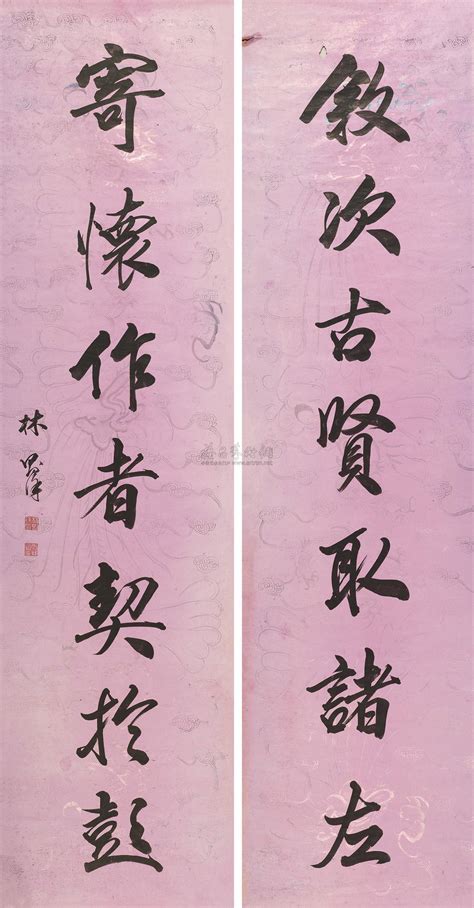 敘次古賢取諸左
寄懷作者契於彭
林則徐